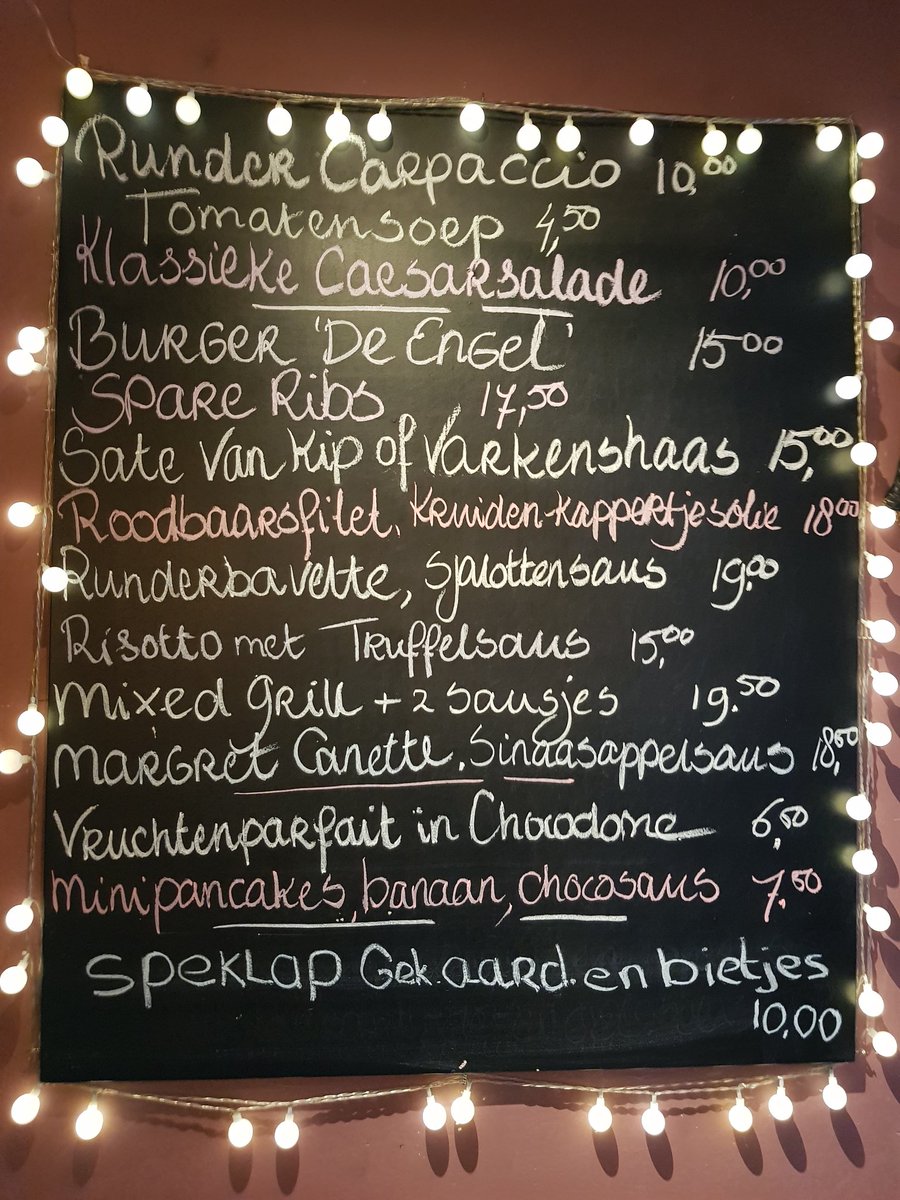 Runder Carpaccio 10,00
Tomatensoep 4,50
Klassieke Caesarsalade 10,00
Burger 'De Engel' 15 00
Spare Ribs 17,50
Sate van Kip of Varkenshaas 15,00
Roodbaarsfilet, Kruiden-kappertjesolie 18 00
Runderbavette, Sjalottensaus 19.00
Risotto met Truffelsaus 15,00
Mixed Grill + 2 sausjes 19.50
Margret Canette, Sinaasappelsaus 18,50
Vruchtenparfait in Chocodome 6,50
Minipancakes, banaan, chocosaus 7.50
Speklap Gek. aard. en bietjes
10,00